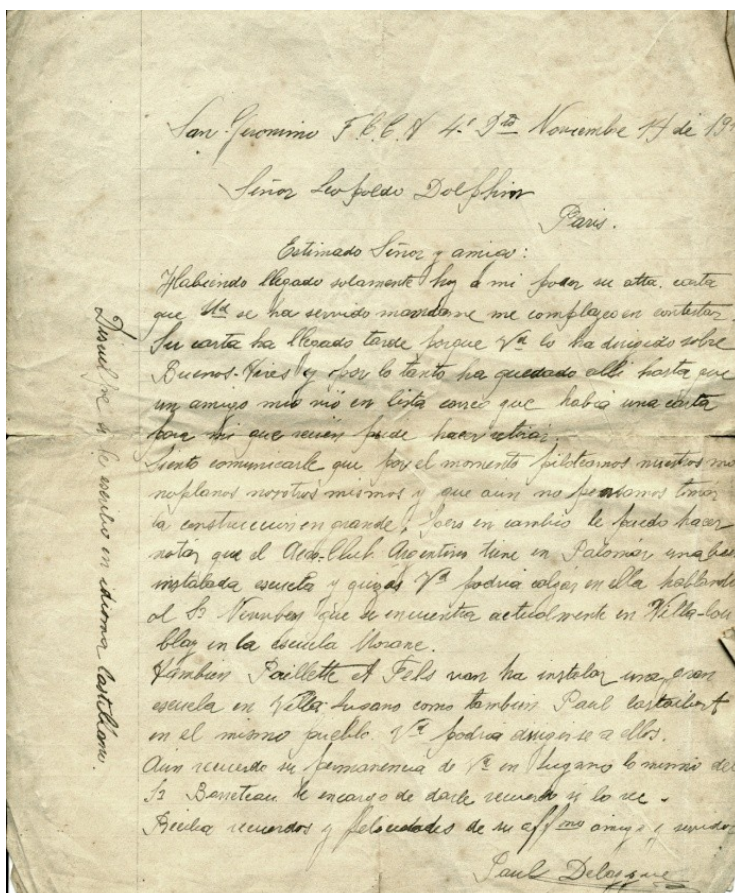 San Geronimo F.C.C.A 4. Dto Noviembre 14 de 19
Señor Leopoldo Dolphin
Paris.
Estimado Señor y amigo:
Habiendo llegado solamente hoy à mi poder su atta. carta
que Ud se ha servido mandarme me complazco en contestar.
Su carta ha llegado tarde porque Vd lo ha dirigido sobre
Buenos-Aires y por lo tanto ha quedado allí hasta que
un amigo mio vió en lista correo que habia una carta
para mi que recien pude hacer retirar.
Siento comunicarle que por el momento piloteamos nuestros mo
noplanos nosotros mismos y que aun no pensamos tomar
la construccion en grande, pero en cambio le puedo hacer
notar que el Aero-Club Argentino tiene en Palomar una bien
instalada escuela y quizás Vd podria entrar en ella hablando
al Sr que se encuentra actualmente en Villa-Cou
blay en la escuela Morane.
Tambien Paillette et Fels van ha instalar una gran
escuela en Villa-Lugano como tambien Paul Castaibert
en el mismo pueblo. Vd podria dirigirse a ellos.
Aun recuerdo su permanencia de Vd en Lugano lo mismo del
Sr le encargo de darle recuerdo si lo ve.
Reciba recuerdos y felicidades de su affmo amigo y servidor
Paul
Disculpe si le escribo en idioma Castellano.